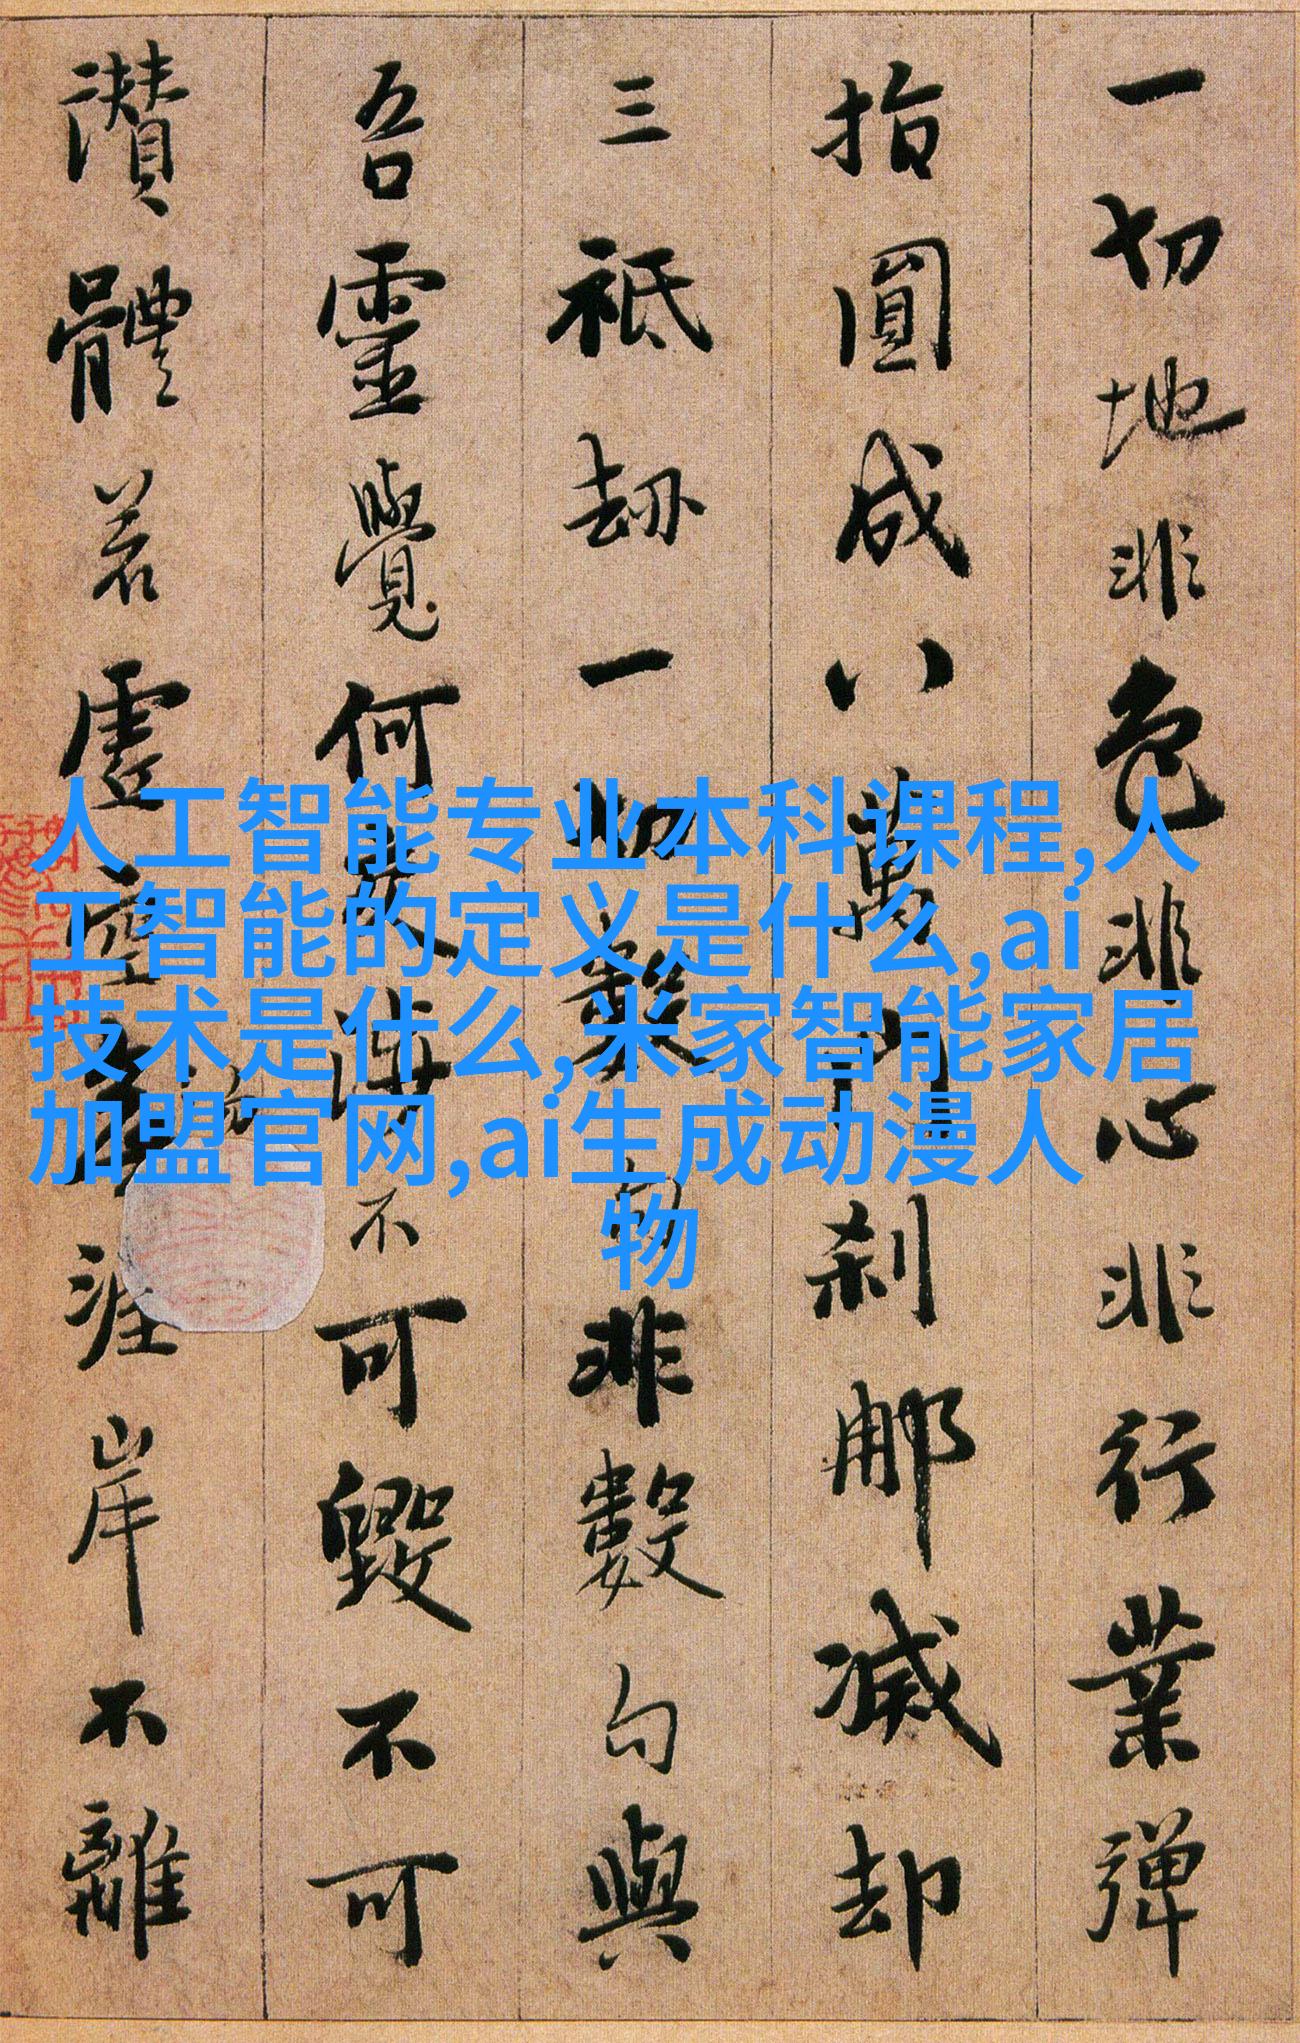 一切地非色非心非行業弹
指圓成八萬门刹那滅却
三祇劫一切數句非數句與
吾靈覺何交涉不可毀不可
讚體若虛空涯岸不離
人工智能专业本科课程,人
工智能的定义是什么,ai
技术是什么,米家智能家居
加盟官网,ai生成动漫人
物